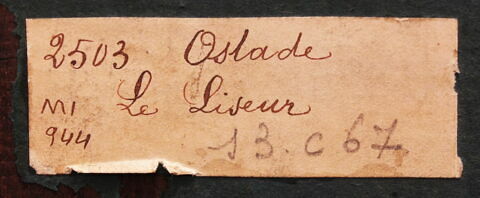 2503 Ostade
MI Le Liseur
944
13. C 67